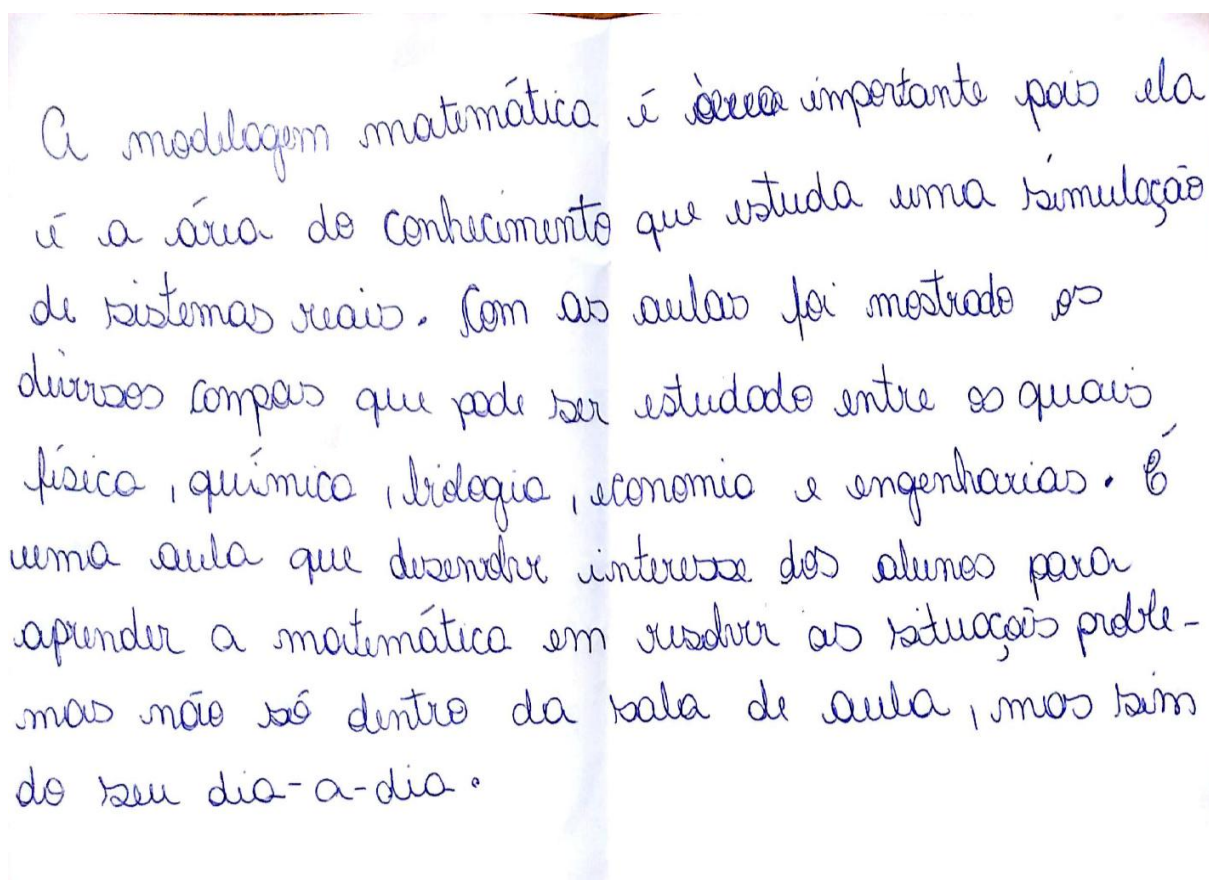 A modelagem matemática é importante pois ela
é a área do conhecimento que estuda uma simulação
de sistemas reais. Com as aulas foi mostrado os
diversos compos que pode ser estudado entre os quais
física, química, biologia, economia e engenharias. É
uma aula que desenvolve interesse dos alunos para
aprender a matemática em resolver as situaçois proble-
mas não só dentro da sala de aula, mas sim
do seu dia-a-dia.